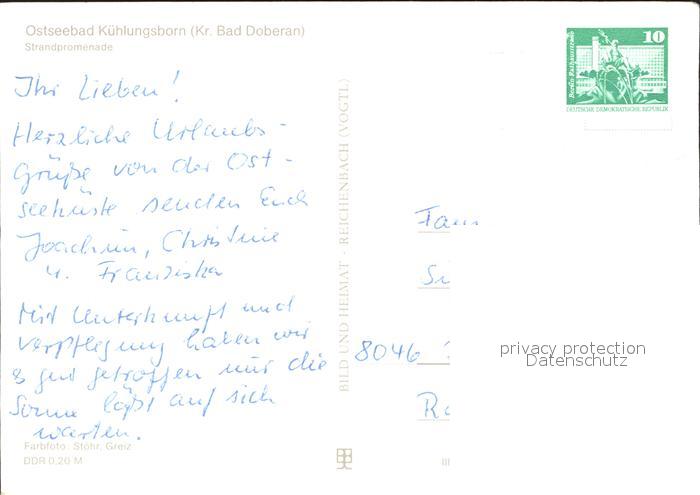 Ostseebad Kühlungsborn (Kr. Bad Doberan)
Strandpromenade
Ihr Lieben!
Herzliche Urlaubs-
Grüße von der Ost-
seeküste senden Euch
Joachim, Christine
u. Franziska
Mit Unterkunft und
Verpflegung haben wir
es gut getroffen nur die
Sonne läßt auf sich
warten.
Farbfoto: Stöhr, Greiz
DDR 0,20 M
BILD UND HEIMAT · REICHENBACH (VOGTL)
10
Berlin-Rathausstraße
DEUTSCHE DEMOKRATISCHE REPUBLIK
Fam
8046
privacy protection
Datenschutz